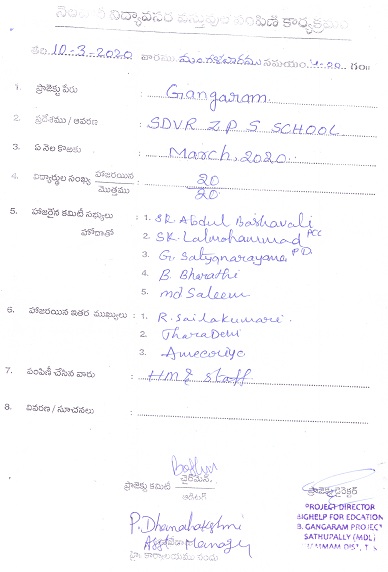 విద్యావసర వస్తువుల పంపిణి కార్యక్రమం
తేది 10-3-2020 వారము మంగళవారము సమయం 4-20 గం॥
1. ప్రాజెక్టు పేరు : Gangaram
2. ప్రదేశము / ఆవరణ : SDVR Z P S SCHOOL
3. ఏ నెల కొఱకు : March, 2020
4. విద్యార్థుల సంఖ్య హాజరయిన / మొత్తము : 20 / 20
5. హాజరైన కమిటీ సభ్యులు : 1. SK. Abdul Bashavali PCC
హోదాతో 2. SK. Lalmohammad
3. G. Satyanarayana, P.D.
4. B. Bharathi
5. md Saleem
6. హాజరయిన ఇతర ముఖ్యులు : 1. R. Sailakumari.
2. TharaDevi
3.
7. పంపిణీ చేసిన వారు : HM & Staff
8. వివరణ / సూచనలు :
ప్రాజెక్టు కమిటీ చైర్మన్,
ఆడిటర్
ప్రాజెక్టు డైరెక్టర్
PROJECT DIRECTOR
BIGHELP FOR EDCATION
B. GANGARAM PROJECT
SATHUPALLY (MDL)
KHMMAM DIST, T.S
P. Dhanalakshmi
Asst Manager
హై. కార్యాలయము నందు